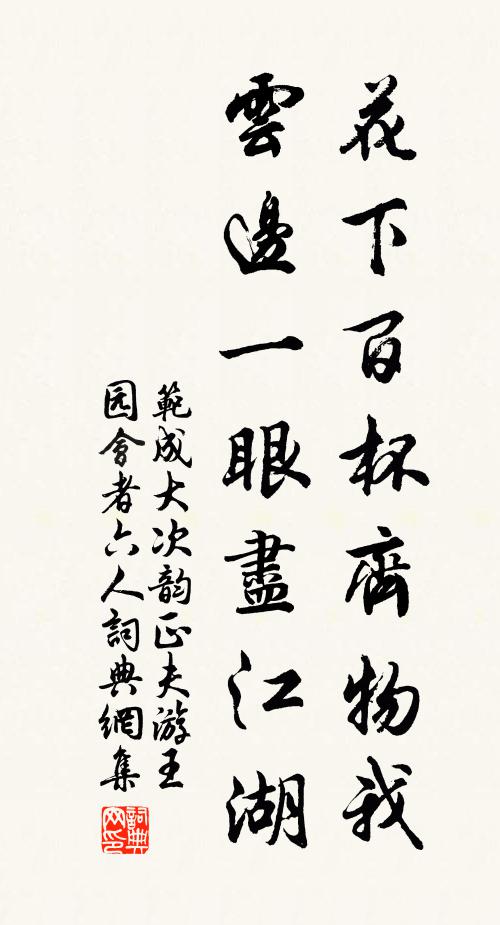 花下百杯齊物我
雲邊一眼盡江湖
範成大次韵正夫游王
园會者六人詞典網集
詞典
网印